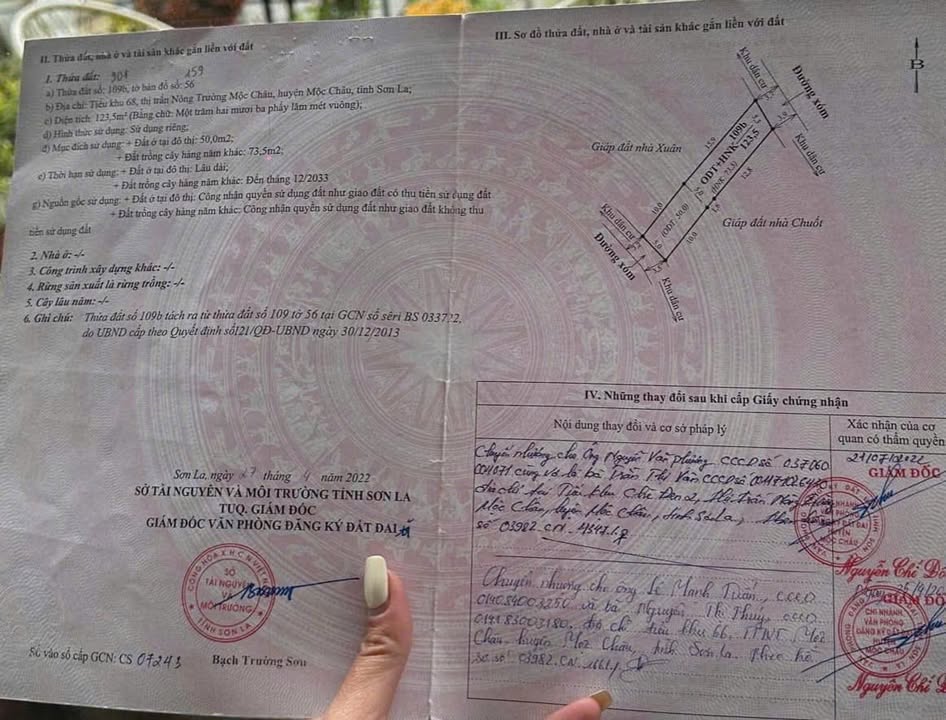 II. Thửa đất, nhà ở và tài sản khác gắn liền với đất
1. Thửa đất: 908 159
a) Thửa đất số: 109b, tờ bản đồ số: 56
b) Địa chỉ: Tiểu khu 68, thị trấn Nông Trường Mộc Châu, huyện Mộc Châu, tỉnh Sơn La;
c) Diện tích: 123,5m² (Bằng chữ: Một trăm hai mươi ba phẩy lăm mét vuông);
d) Hình thức sử dụng: Sử dụng riêng;
đ) Mục đích sử dụng: + Đất ở tại đô thị: 50,0m2;
+ Đất trồng cây hàng năm khác: 73,5m2;
e) Thời hạn sử dụng: + Đất ở tại đô thị: Lâu dài;
+ Đất trồng cây hàng năm khác: Đến tháng 12/2033
g) Nguồn gốc sử dụng: + Đất ở tại đô thị: Công nhận quyền sử dụng đất như giao đất có thu tiền sử dụng đất
+ Đất trồng cây hàng năm khác: Công nhận quyền sử dụng đất như giao đất không thu
tiền sử dụng đất
2. Nhà ở: -/-
3. Công trình xây dựng khác: -/-
4. Rừng sản xuất là rừng trồng: -/-
5. Cây lâu năm: -/-
6. Ghi chú: Thửa đất số 109b tách ra từ thửa đất số 109 tờ 56 tại GCN số sêri BS 033722,
do UBND cấp theo Quyết định số121/QĐ-UBND ngày 30/12/2013
Sơn La, ngày 27 tháng 4 năm 2022
SỞ TÀI NGUYÊN VÀ MÔI TRƯỜNG TỈNH SƠN LA
TUQ. GIÁM ĐỐC
GIÁM ĐỐC VĂN PHÒNG ĐĂNG KÝ ĐẤT ĐAI
CỘNG HÒA X.H.C.N VIỆT NAM
SỞ
TÀI NGUYÊN
VÀ
MÔI TRƯỜNG
TỈNH SƠN LA
Số vào sổ cấp GCN: CS 07243
Bạch Trường Sơn
III. Sơ đồ thửa đất, nhà ở và tài sản khác gắn liền với đất
B
Khu dân cư
Đường xóm
Khu dân cư
Giáp đất nhà Xuân
ODT+HNK 109b
123,5
(HNK: 73,5)
(ODT: 50,0)
15,9
12,8
10,0
10,0
5,0
Giáp đất nhà Chuốt
Khu dân cư
Đường xóm
Khu dân cư
IV. Những thay đổi sau khi cấp Giấy chứng nhận
Nội dung thay đổi và cơ sở pháp lý
Xác nhận của cơ
quan có thẩm quyền
Chuyển nhượng cho Ông Nguyễn Văn Phương CCCD số 037060
004071 cùng vợ là bà Trần Thị Vân CCCD số
địa chỉ tại Tiểu khu Chè Đen 2, Thị trấn Nông Trường
Mộc Châu, huyện Mộc Châu, tỉnh Sơn La, theo hồ sơ
số 03982.CN.
21/07/2022
GIÁM ĐỐC
CHI NHÁNH
VĂN PHÒNG
ĐĂNG KÝ ĐẤT ĐAI
HUYỆN
MỘC CHÂU
Nguyễn Chí Đ
Chuyển nhượng cho ông Lê Mạnh Tuấn, CCCD
014084003250 và bà Nguyễn Thị Thúy, CCCD
014183003180, địa chỉ tiểu khu 66, TTNT Mộc
Châu, huyện Mộc Châu, tỉnh Sơn La theo hồ
sơ số 03982.CN.
GIÁM ĐỐC
CHI NHÁNH
VĂN PHÒNG
ĐĂNG KÝ ĐẤT ĐAI
HUYỆN
MỘC CHÂU
Nguyễn Chí Đ